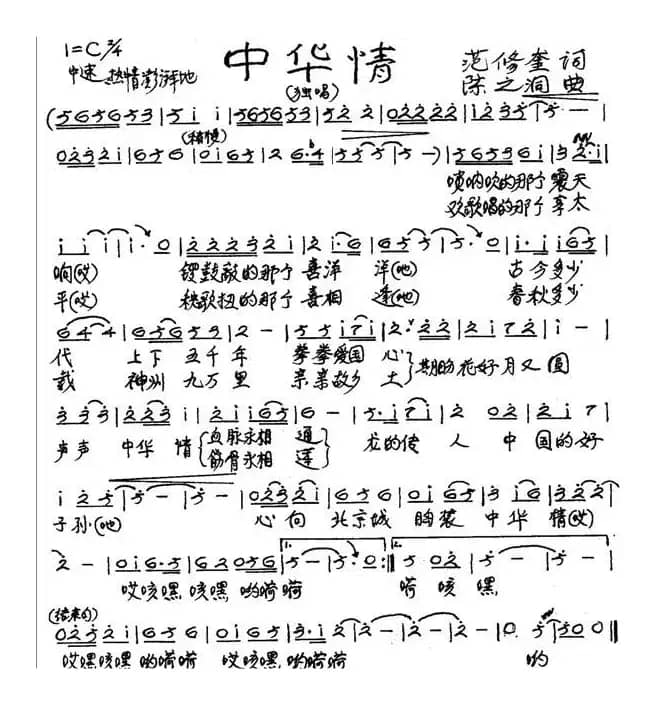 1=C 2/4
中速 热情澎湃地
中华情
(独唱)
范修奎 词
陈之润 曲
(5656553|5 i i|5656553|5 2 2|02222|i 2 3 5|5 - |
(稍慢)
0232i|656|0i65|2 6·4|5 5 5|5 -)|565361|3 2·i|
唢呐吹的那个震天
欢歌唱的那个享太
i i i|i·0|22232i|2 i·6|6 5 5|5·0|i·i i65|
响(哎) 锣鼓敲的那个喜洋 洋(地) 古今多少
平(哎) 秧歌扭的那个喜相 逢(地) 春秋多少
644|656553|2 -|55i7i|2·22|2i72|i -|
代 上下五千年 拳拳爱国心
载 神州九万里 亲亲故乡土 期盼花好月又圆
335|2235 i|2ii65|6 -|5·i7i|2 02|2i7|
声声 中华情 血脉永相 通 龙的传 人 中国的好
筋骨永相 连
i 25|5 -|5 -|02322i|656|0i65|3 i6|3 2 2|
子孙(地) 心向 北京城 胸装 中华情(哎)
2 -|0i6·5|62056|5 -|5·0:|5 02|5 -|5 -|
1. 2.
哎咳嘿 咳嘿 哟嗬嗬 嗬咳嘿
(结束句)
0252i|656|0i65|3·i2|2 -|2 -|2 -|0 5|500||
哎嘿咳嘿 哟嗬嗬 哎咳嘿 哟嗬嗬 哟